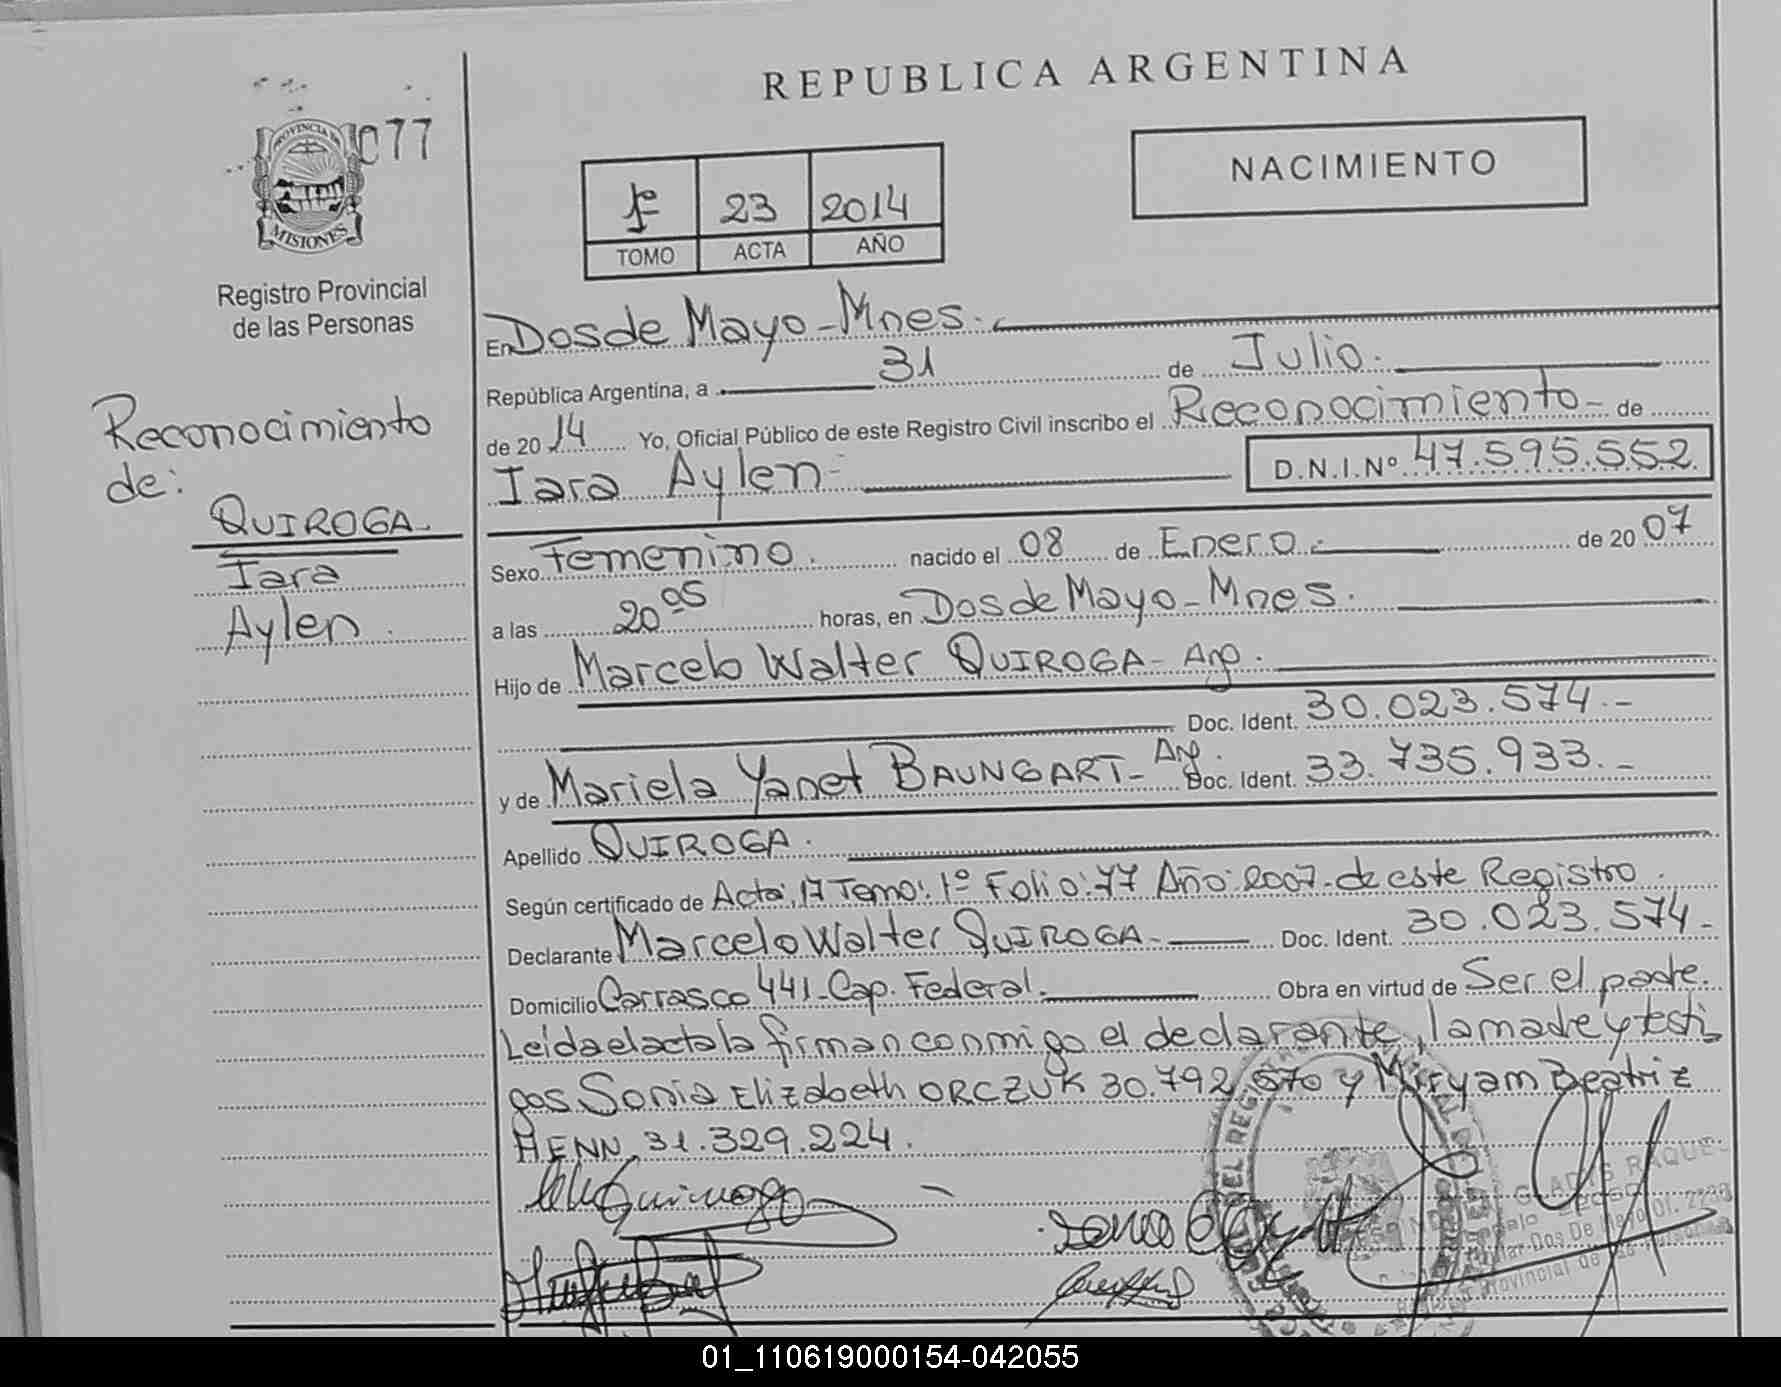 REPUBLICA ARGENTINA
077
PROVINCIA DE
MISIONES
Registro Provincial
de las Personas
NACIMIENTO
1º 23 2014
TOMO ACTA AÑO
En Dos de Mayo - Mnes.
República Argentina, a 31 de Julio.
de 2014 Yo, Oficial Público de este Registro Civil inscribo el Reconocimiento - de
Iara Aylen - D.N.I.Nº 47.595.552
Reconocimiento
de:
QUIROGA
Iara
Aylen.
Sexo Femenino. nacido el 08 de Enero. de 2007
a las 20 05 horas, en Dos de Mayo - Mnes.
Hijo de Marcelo Walter QUIROGA - Arg.
Doc. Ident. 30.023.574.-
y de Mariela Yanet BAUNGART - Arg. Doc. Ident. 33.735.933.-
Apellido QUIROGA.
Según certificado de Acta: 17 Tomo: 1º Folio: 77 Año: 2007- de este Registro.
Declarante Marcelo Walter QUIROGA - Doc. Ident. 30.023.574-
Domicilio Carrasco 441 - Cap. Federal. Obra en virtud de Ser el padre.
Leída el acta la firman conmigo el declarante, la madre y testi
gos Sonia Elizabeth ORCZUK 30.792.570 y Miryam Beatriz
HENN 31.329.224.
GLADYS RAQUEL
01_110619000154-042055